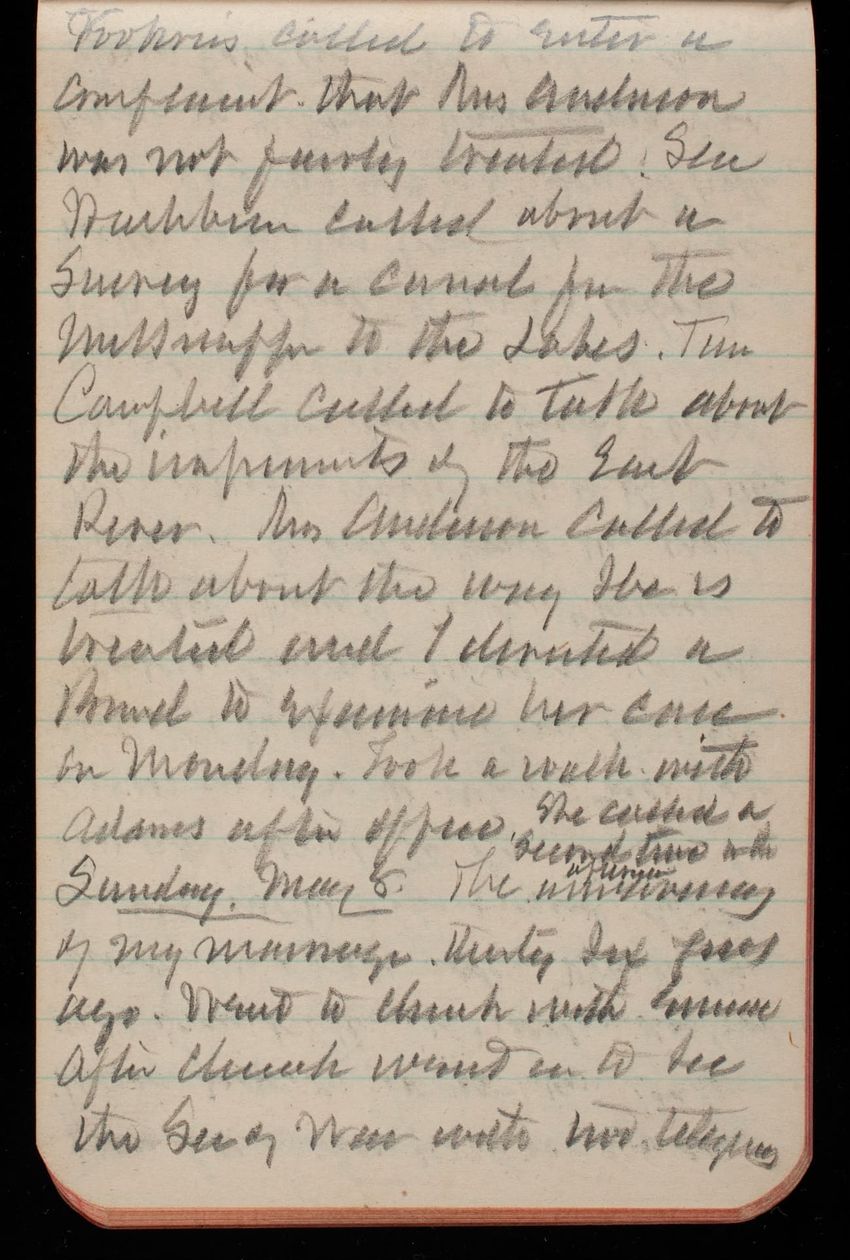 called to enter a
complaint that Mrs Anderson
was not fairly treated. Sen
Washburn called about a
Survey for a Canal for the
Mississippi to the Lakes. Tim
Campbell called to talk about
the improments of the East
River. Mrs Anderson called to
talk about the way She is
treated and I directed a
Board to examine her case
on Monday. Took a walk with
Adams after office. She called a
second time in the
afternoon
Sunday, May 5 The anniversary
of my marriage. Thirty Six years
ago. Went to church with Emma
After church went in to see
the Sec of War with two telegrams